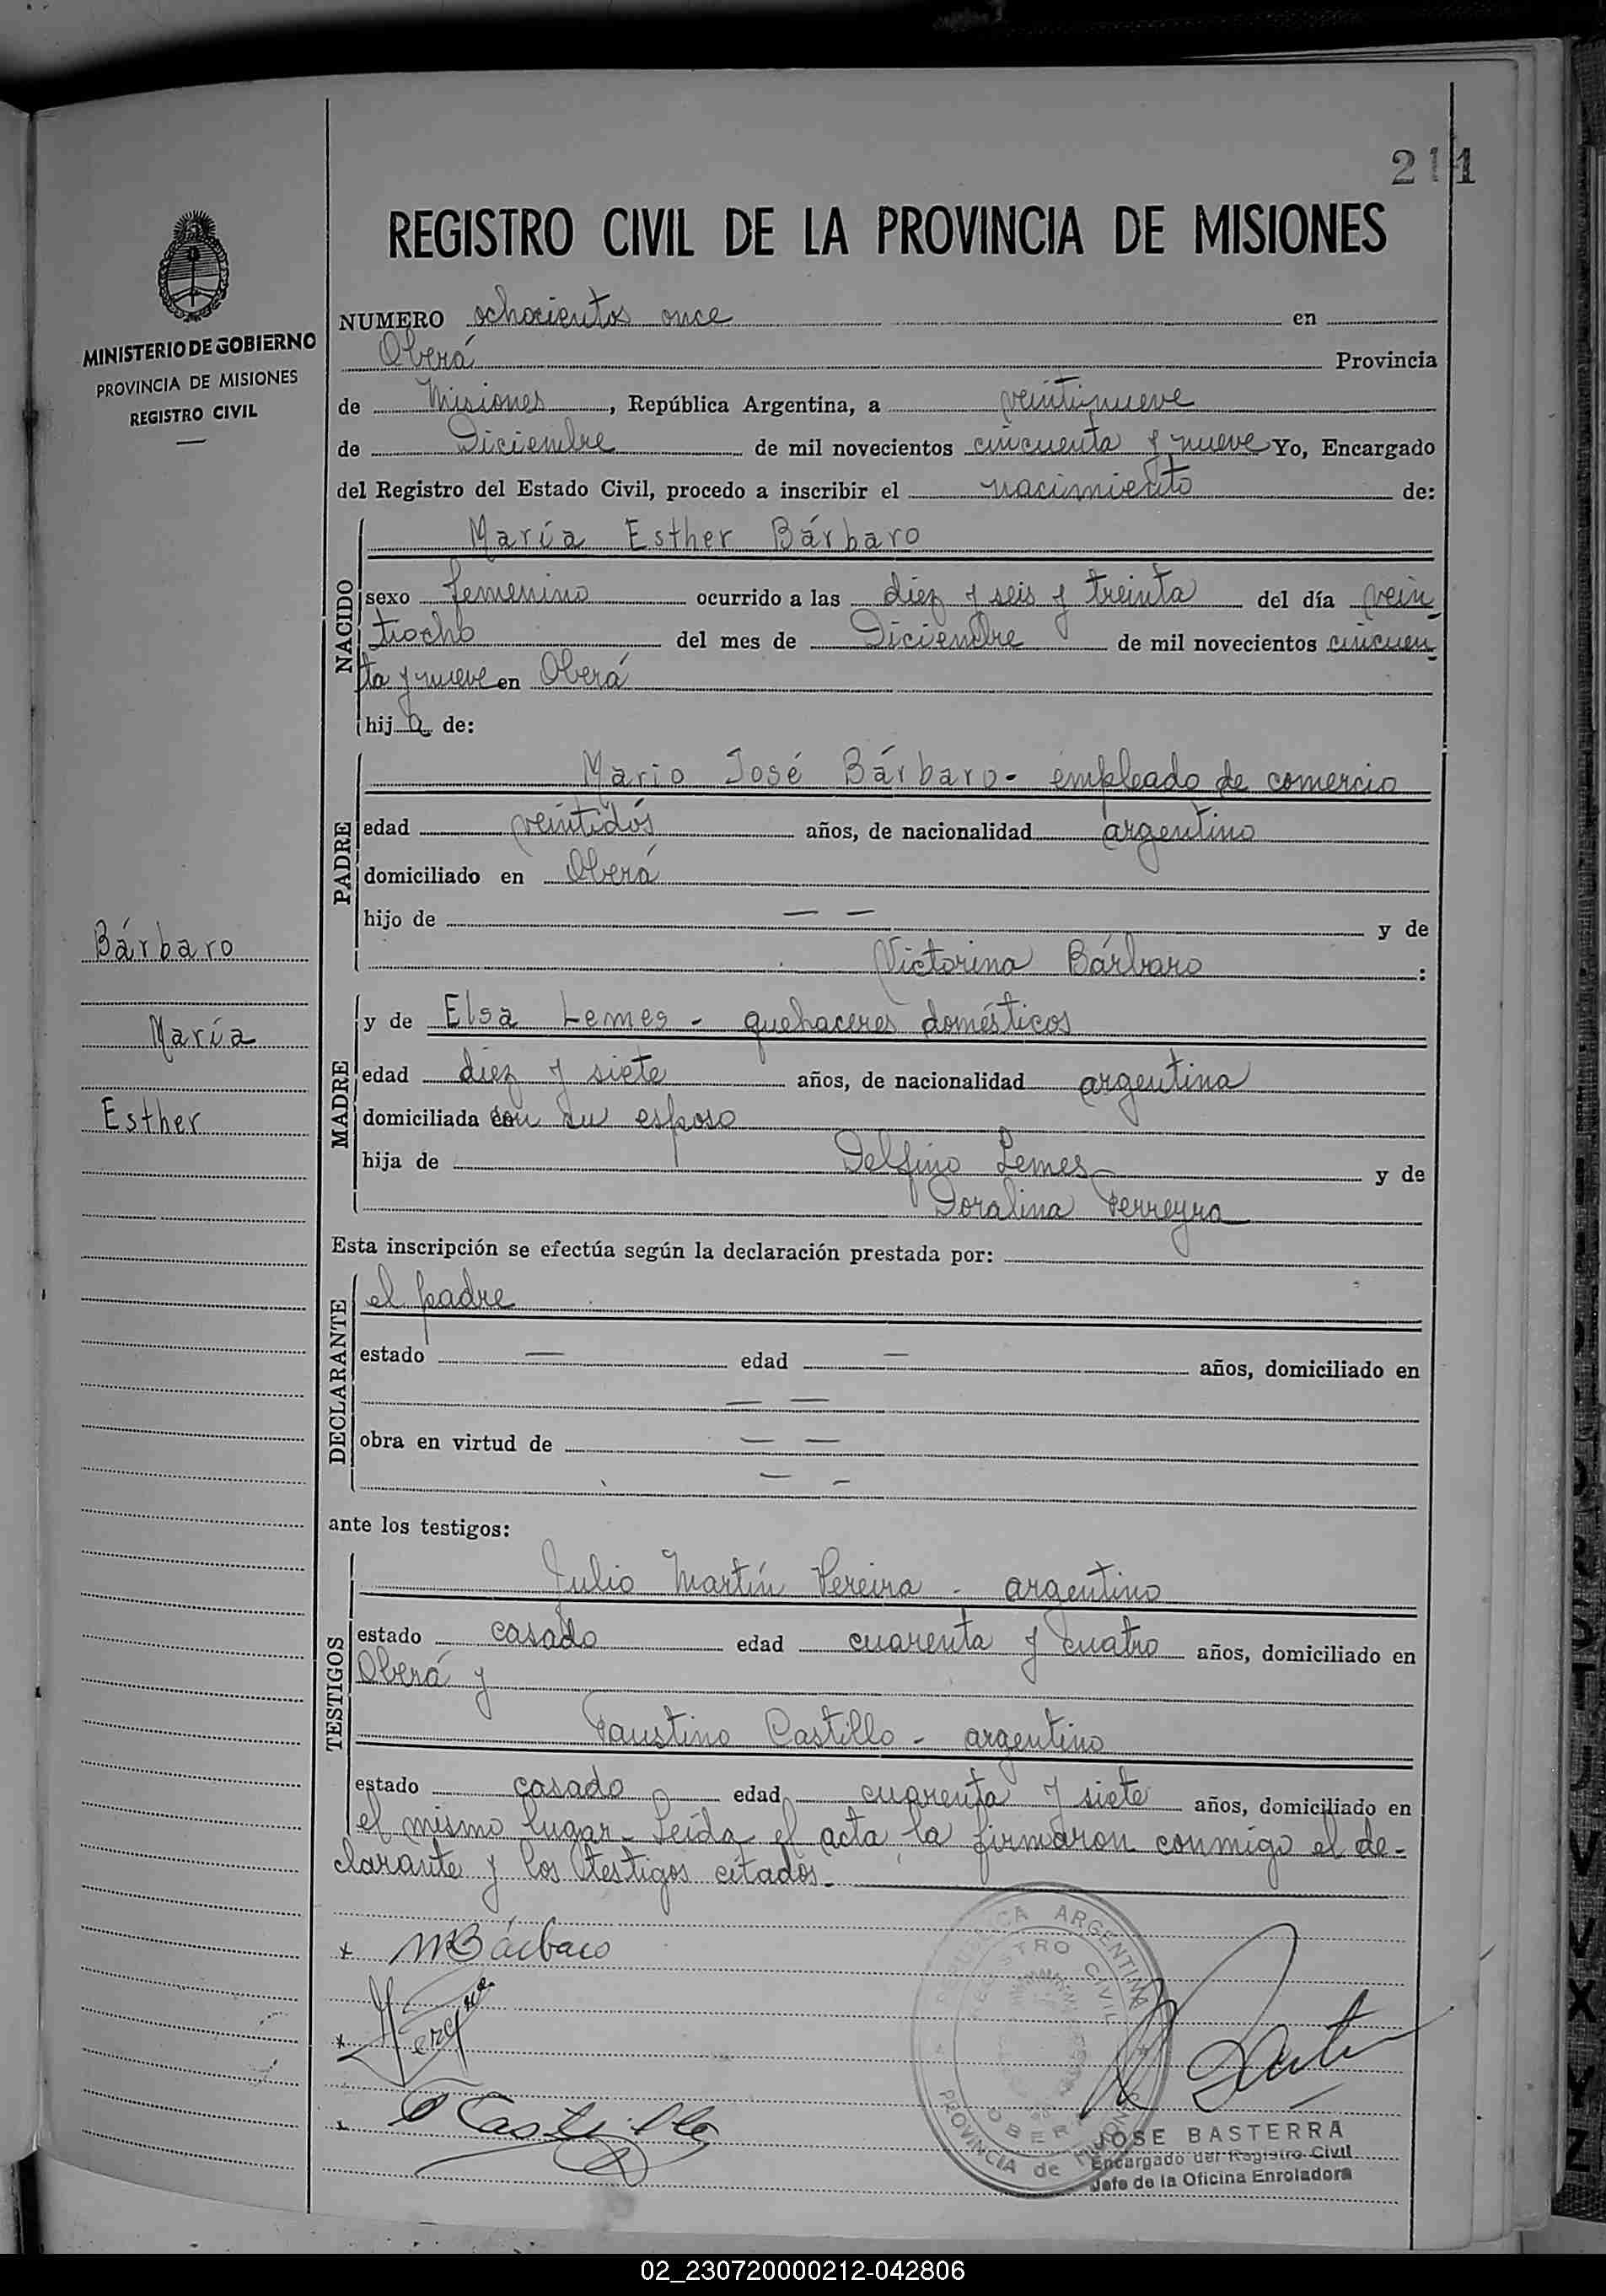 211
REGISTRO CIVIL DE LA PROVINCIA DE MISIONES
MINISTERIO DE GOBIERNO
PROVINCIA DE MISIONES
REGISTRO CIVIL
NUMERO ochocientos once en
Oberá Provincia
de Misiones, República Argentina, a veintinueve
de Diciembre de mil novecientos cincuenta y nueve Yo, Encargado
del Registro del Estado Civil, procedo a inscribir el nacimiento de:
NACIDO
María Esther Bárbaro
sexo femenino ocurrido a las diez y seis y treinta del día vein
tiocho del mes de Diciembre de mil novecientos cincuen
ta y nueve en Oberá
hija de:
PADRE
Mario José Bárbaro - empleado de comercio
edad veintidós años, de nacionalidad argentino
domiciliado en Oberá
hijo de — — y de
Victorina Bárbaro :
Bárbaro
María
Esther
MADRE
y de Elsa Lemes - quehaceres domésticos
edad diez y siete años, de nacionalidad argentina
domiciliada con su esposo
hija de Delfino Lemes y de
Doralina Ferreyra
Esta inscripción se efectúa según la declaración prestada por:
DECLARANTE
el padre
estado — edad — años, domiciliado en
— —
obra en virtud de — —
— —
ante los testigos:
TESTIGOS
Julio Martín Pereira - argentino
estado casado edad cuarenta y cuatro años, domiciliado en
Oberá y
Faustino Castillo - argentino
estado casado edad cuarenta y siete años, domiciliado en
el mismo lugar - Leída el acta la firmaron conmigo el de-
clarante y los testigos citados.-
x MBárbaro
x
x Castillo
REPUBLICA ARGENTINA
REGISTRO CIVIL
OBERA
PROVINCIA de MISIONES
JOSE BASTERRA
Encargado del Registro Civil
Jefe de la Oficina Enroladora
02_230720000212-042806